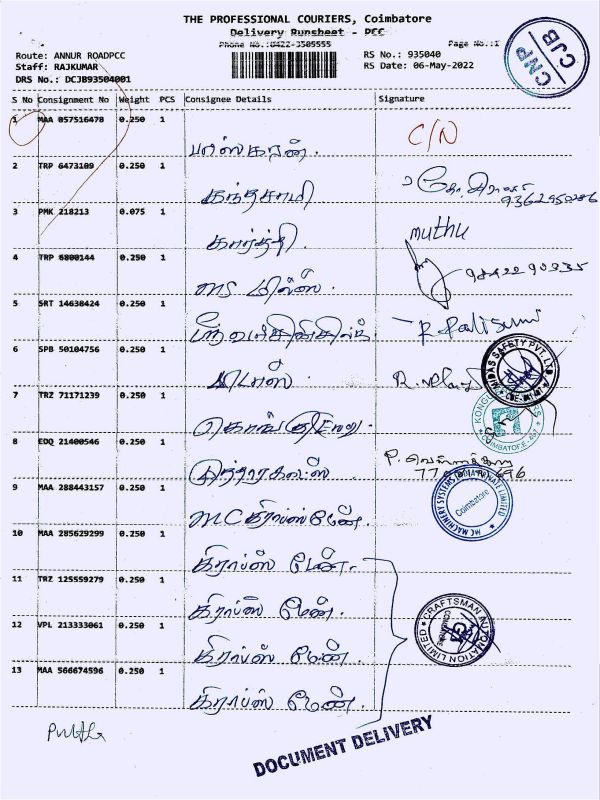 THE PROFESSIONAL COURIERS, Coimbatore
Delivery Runsheet - PCC
Phone No.:0422-3505555
Page No.:1
Route: ANNUR ROADPCC
RS No.: 935040
Staff: RAJKUMAR
RS Date: 06-May-2022
DRS No.: DCJB93504001
CMP
CJB
S No Consignment No Weight PCS Consignee Details Signature
1 MAA 057516478 0.250 1 பாஸ்கரன். C/N
2 TRP 6473109 0.250 1 கந்தசாமி
3 PMK 218213 0.075 1 கார்த்தி muthu
4 TRP 6800144 0.250 1 ms மில்ஸ்
5 SRT 14638424 0.250 1
6 SPB 50104756 0.250 1 மிடாஸ் R.
MIDAS SAFETY PVT. LTD
7 TRZ 71171239 0.250 1
COIMBATORE
8 EDQ 21400546 0.250 1 P.
9 MAA 288443157 0.250 1 MC கிராப்ஸ் மேன்.
MC MACHINERY SYSTEMS INDIA PRIVATE LIMITED
Coimbatore
10 MAA 285629299 0.250 1 கிராப்ஸ் மேன்.
11 TRZ 125559279 0.250 1 கிராப்ஸ் மேன்.
12 VPL 213333061 0.250 1 கிராப்ஸ் மேன்.
CRAFTSMAN AUTOMATION LIMITED
13 MAA 566674596 0.250 1 கிராப்ஸ் மேன்.
DOCUMENT DELIVERY